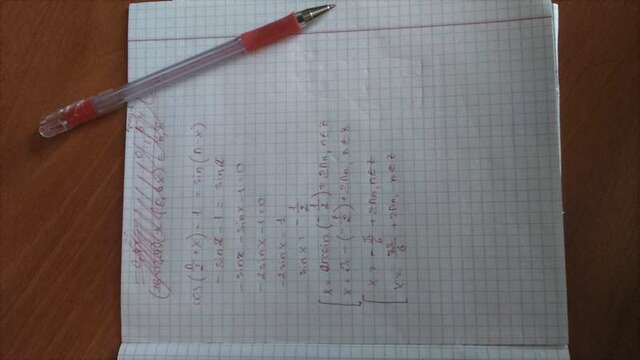 cos(π/2 + x) - 1 = sin(π - x)
- sin x - 1 = sin x
- sin x - sin x - 1 = 0
- 2 sin x - 1 = 0
- 2 sin x = 1
sin x = - 1/2
[ x = arcsin(- 1/2) + 2πn, n ∈ z
x = π - (- 1/2) + 2πn, n ∈ z
[ x = - π/6 + 2πn, n ∈ z
x = 7π/6 + 2πn, n ∈ z